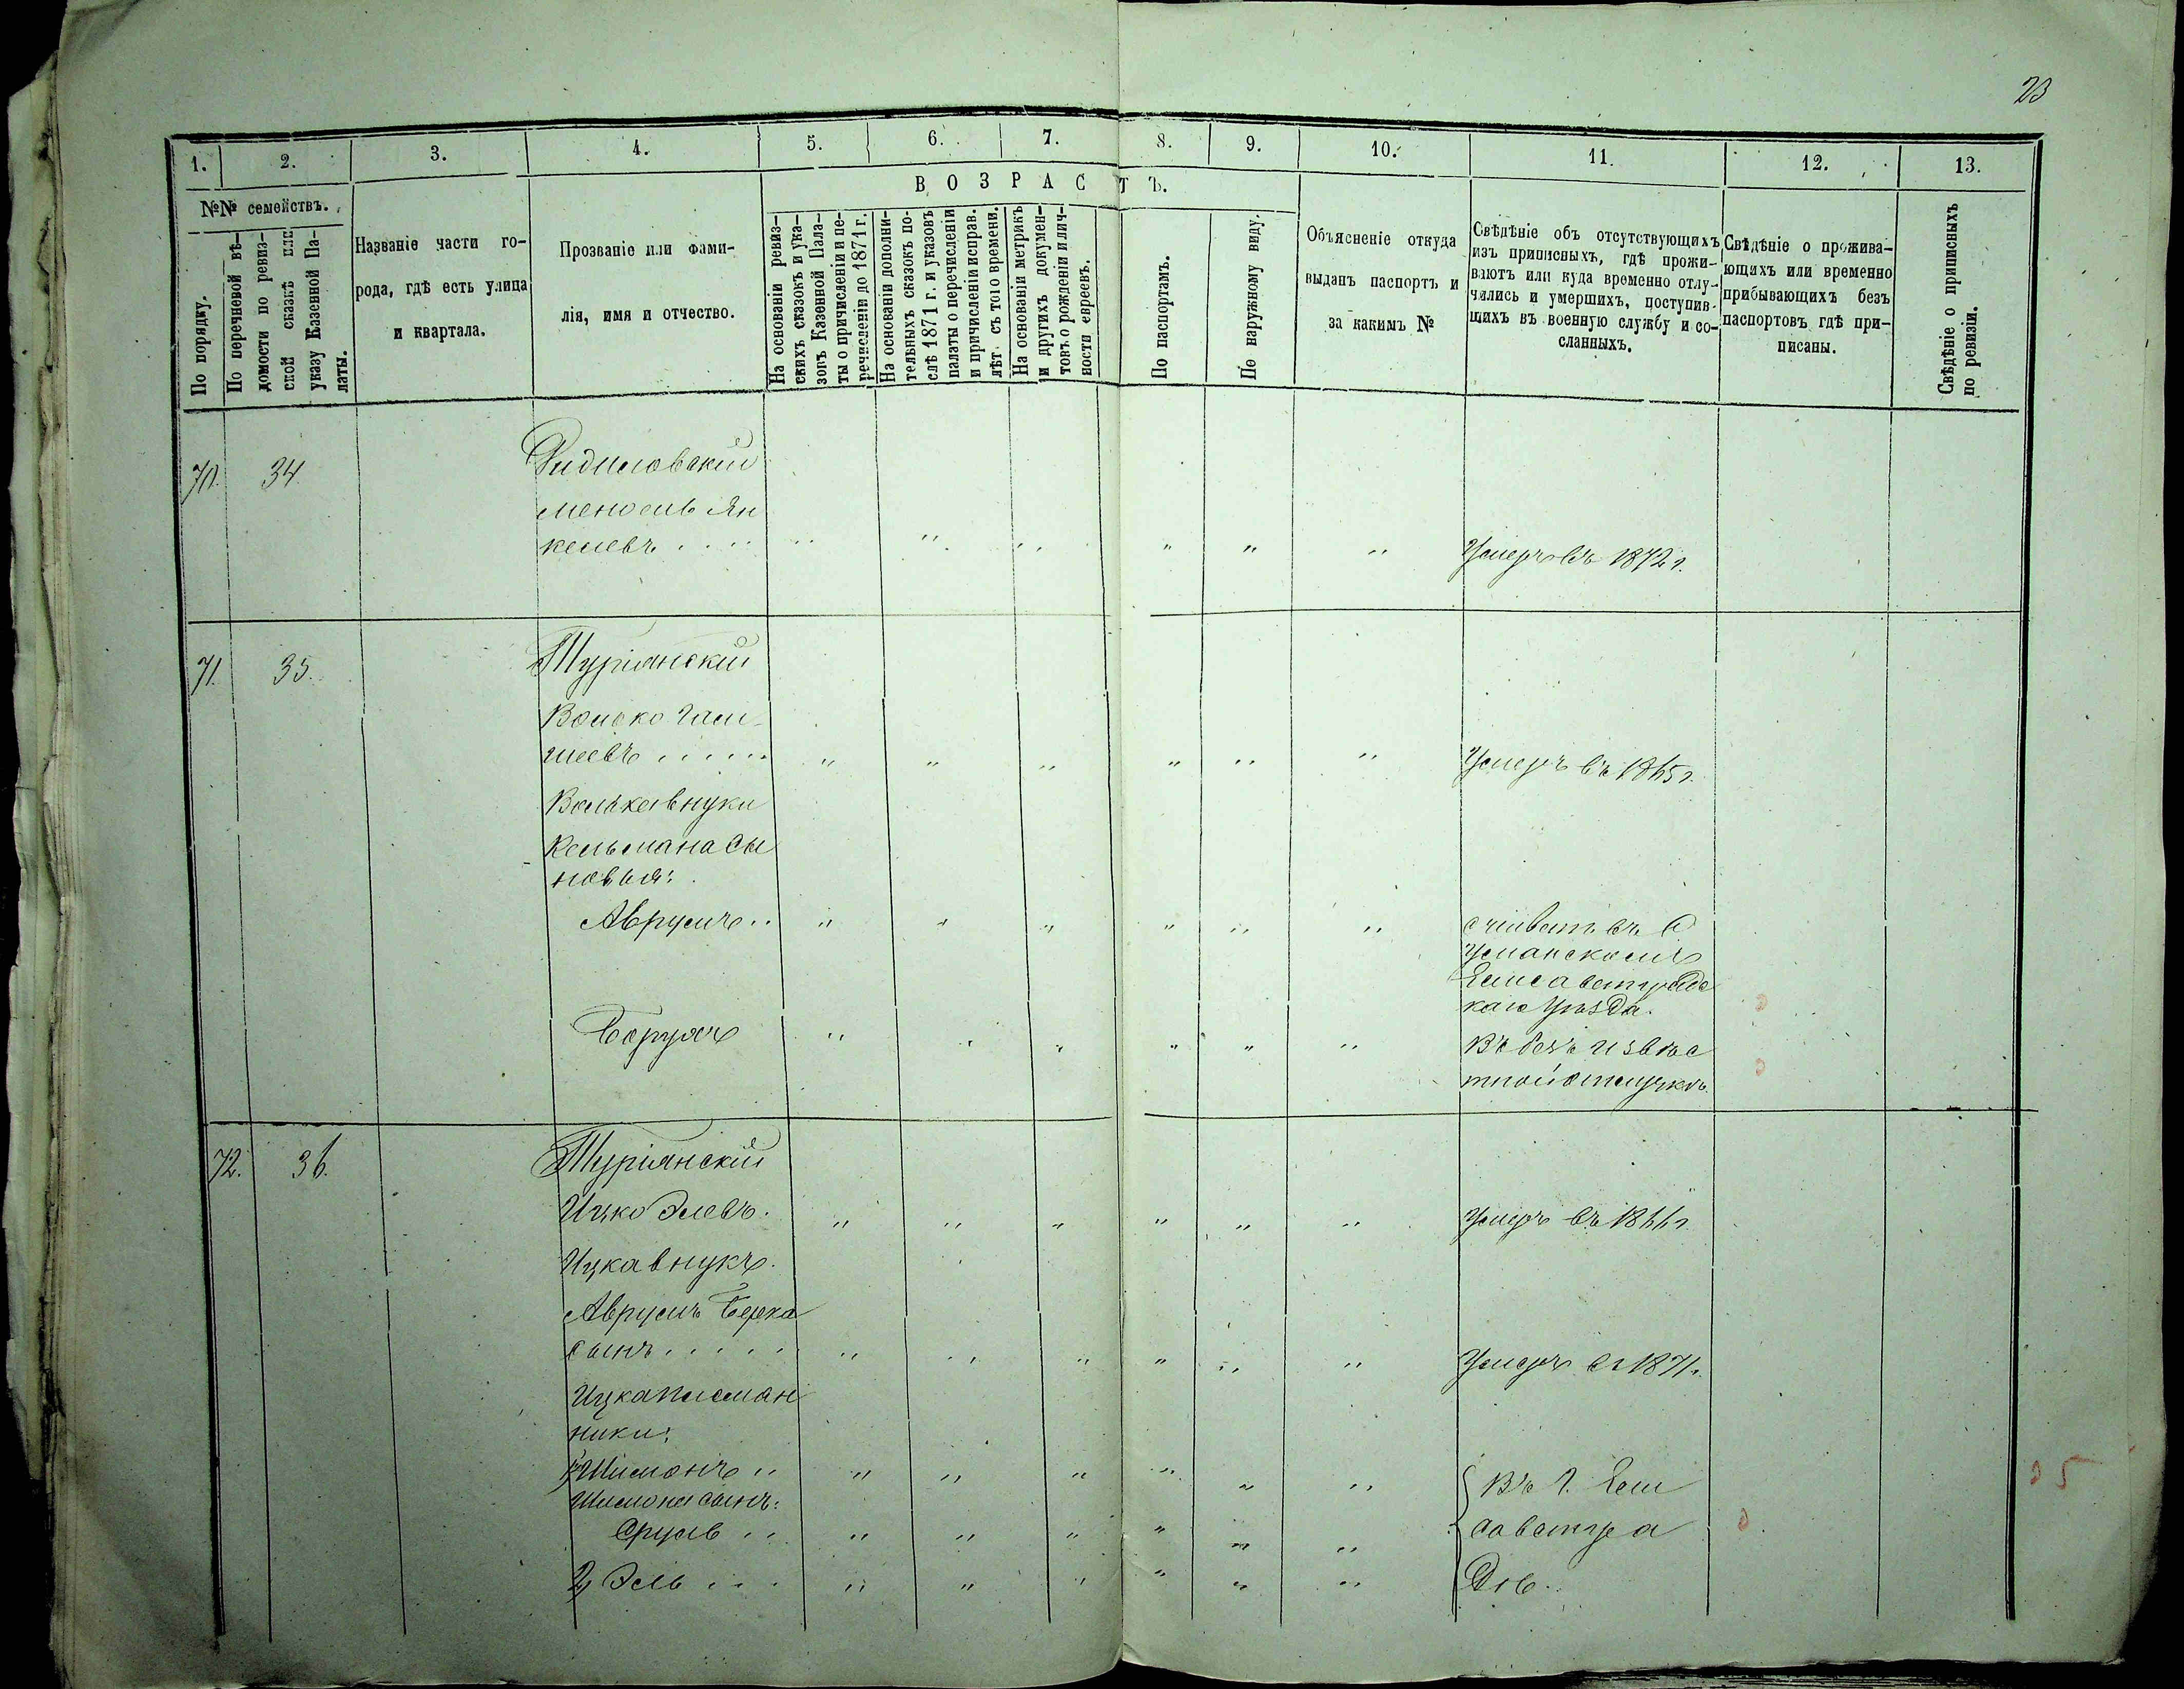 23
1. 2. 3. 4. 5. 6. 7. 8. 9. 10. 11. 12. 13.
№№ семействъ.
По порядку.
По перечневой вѣ-
домости по ревиз-
ской сказкѣ или
указу Казенной Па-
латы.
Названіе части го-
рода, гдѣ есть улица
и квартала.
Прозваніе или фами-
лія, имя и отчество.
ВОЗРАСТЪ.
На основаніи ревиз-
скихъ сказокъ и ука-
зовъ Казенной Пала-
ты о причисленіи и пе-
речисленіи до 1871 г.
На основаніи дополни-
тельныхъ сказокъ по-
слѣ 1871 г. и указовъ
палаты о перечисленіи
и причисленіи исправ.
лѣт. съ того времени.
На основаніи метрикъ
и другихъ докумен-
товъ о рожденіи и лич-
ности евреевъ.
По паспортамъ.
По наружному виду.
Объясненіе откуда
выданъ паспортъ и
за какимъ №
Свѣдѣніе объ отсутствующихъ
изъ приписныхъ, гдѣ прожи-
ваютъ или куда временно отлу-
чились и умершихъ, поступив-
шихъ въ военную службу и со-
сланныхъ.
Свѣдѣніе о прожива-
ющихъ или временно
прибывающихъ безъ
паспортовъ гдѣ при-
писаны.
Свѣдѣніе о приписныхъ
по ревизіи.
70. 34
Мендель Ян
келевъ . . . . " " " " " " Умеръ въ 1872 г.
71. 35. Туріянскій
Волько Гам
шеевъ . . . . . " " " " " " Умеръ въ 1865 г.
Волька внуки
Кельмана сы
новья:
Аврумъ " " " " " " " живетъ въ с
Усманскомъ
Елисаветград
каго Уѣзда.
Борухъ " " " " " " Въ безъ извѣс
тной отлучкѣ.
72. 36. Туріянскій
Ицко Элевъ. " " " " " " Умеръ въ 1866 г.
Ицка внукъ.
Аврумъ Берка
сынъ . . . . . " " " " " " Умеръ въ 1871 г.
Ицка племян
ники:
1, Шимонъ " " " " " " " Въ г. Ели
Шимона сынъ:
Сруль . . " " " " " " саветгра
2, Эль . . . " " " " " " дѣ.